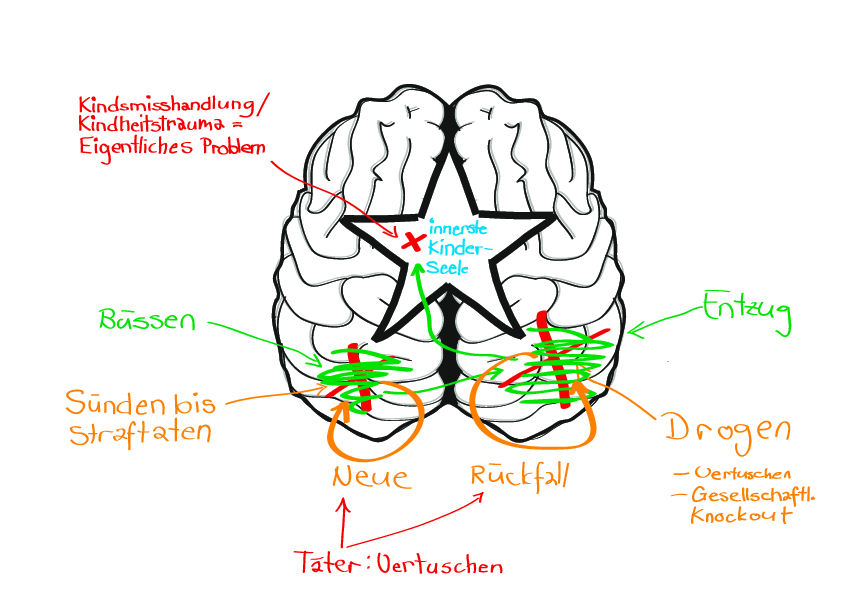 Kindsmisshandlung/
Kindheitstrauma =
Eigentliches Problem
innerste
Kinder-
Seele
Büssen
Entzug
Sünden bis
Straftaten
Drogen
- Vertuschen
- Gesellschaftl.
Knockout
Neue
Rückfall
Täter: Vertuschen